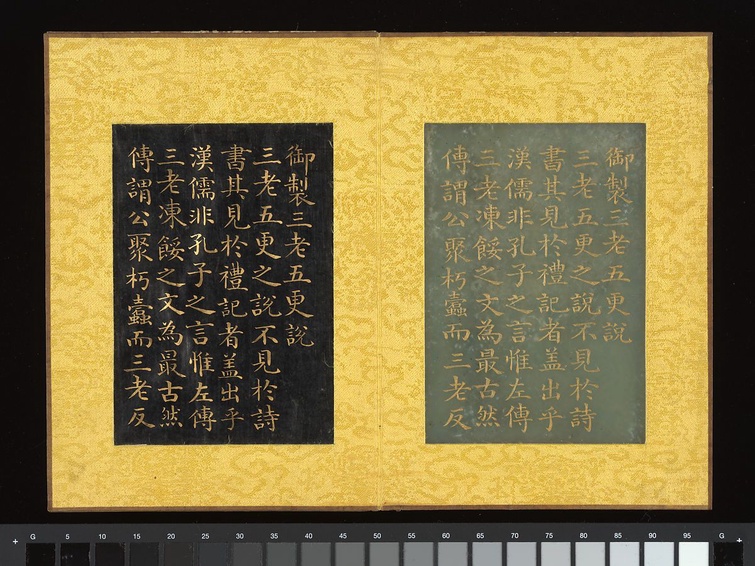 御製三老五更說
三老五更之說不見於詩
書其見於禮記者盖出乎
漢儒非孔子之言惟左傳
三老凍餒之文為最古然
傳謂公聚朽蠹而三老反
御製三老五更說
三老五更之說不見於詩
書其見於禮記者盖出乎
漢儒非孔子之言惟左傳
三老凍餒之文為最古然
傳謂公聚朽蠹而三老反
+ G 5 10 15 20 25 30 35 40 45 50 55 60 65 70 75 80 85 90 95 G +